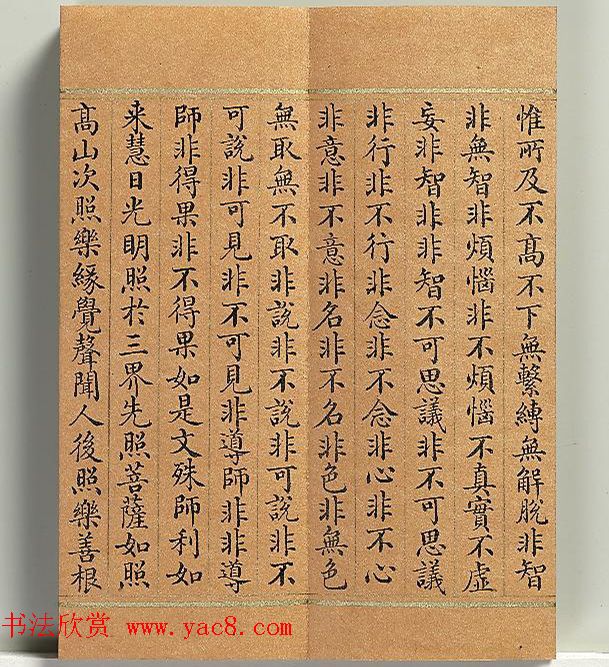 惟所及不高不下無繫縛無解脫非智
非無智非煩惱非不煩惱不真實不虛
妄非智非非智不可思議非不可思議
非行非不行非念非不念非心非不心
非意非不意非名非不名非色非無色
無取無不取非說非不說非可說非不
可說非可見非不可見非導師非非導
師非得果非不得果如是文殊師利如
来慧日光明照於三界先照菩薩如照
髙山次照樂緣覺聲聞人後照樂善根
书法欣赏 www.yac8.com